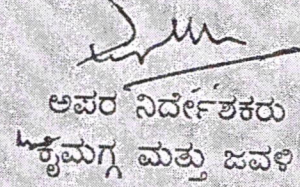 ಅಪರ ನಿರ್ದೇಶಕರು
ಕೈಮಗ್ಗ ಮತ್ತು ಜವಳಿ